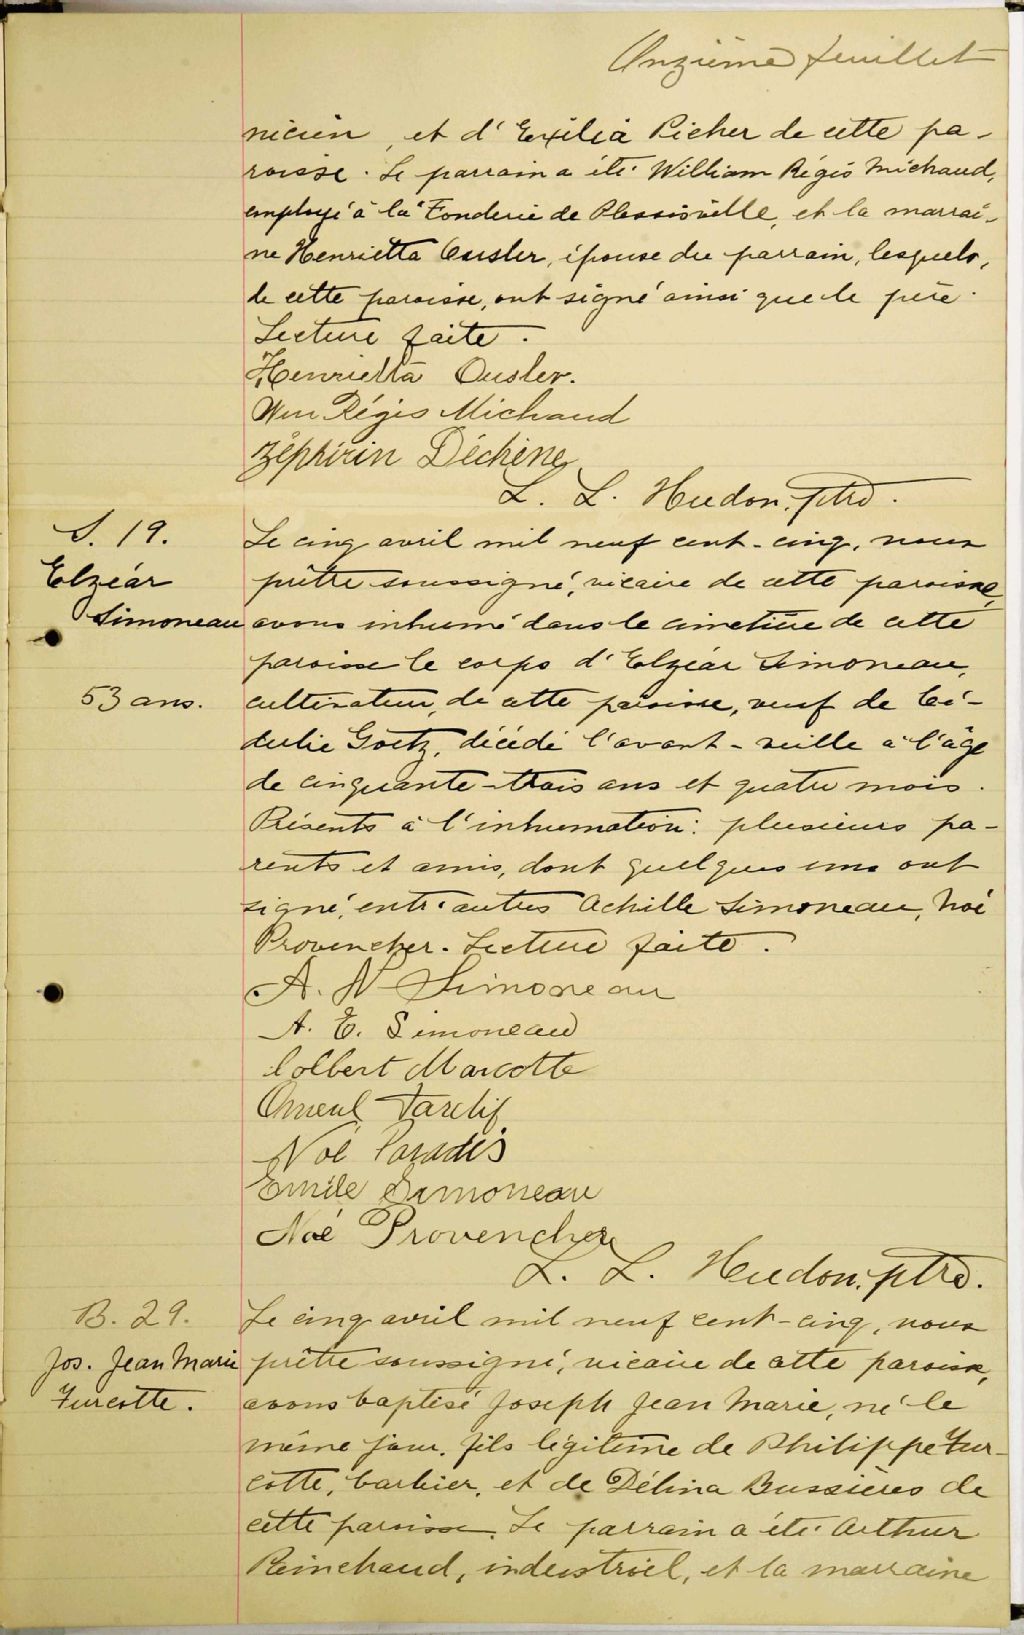 Onzième feuillet
nicien, et d'Exilia Picher de cette pa-
roisse. Le parrain a été William Régis Michaud,
employé à la Fonderie de Plessisville, et la marrai-
ne Henrietta Ousler, épouse du parrain, lesquels,
de cette paroisse, ont signé ainsi que le père.
Lecture faite.
Henrietta Ousler.
Wm Régis Michaud
Zéphirin Déchène
L. L. Hudon, ptre.
S. 19.
Elzéar
Simoneau
53 ans.
Le cinq avril mil neuf cent-cinq, nous
prêtre soussigné, vicaire de cette paroisse,
avons inhumé dans le cimetière de cette
paroisse le corps d'Elzéar Simoneau,
cultivateur, de cette paroisse, veuf de Cé-
dulie Goetz, décédé l'avant-veille à l'âge
de cinquante-trois ans et quatre mois.
Présents à l'inhumation: plusieurs pa-
rents et amis, dont quelques uns ont
signé, entr'autres Achille Simoneau, Noé
Provencher. Lecture faite.
A. N Simoneau
A. E. Simoneau
Colbert Marcotte
Tardif
Noé Paradis
Emile Simoneau
Noé Provencher
L. L. Hudon, ptre.
B. 29.
Jos. Jean Marie
Turcotte.
Le cinq avril mil neuf cent-cinq, nous
prêtre soussigné, vicaire de cette paroisse,
avons baptisé Joseph Jean Marie, né le
même jour, fils légitime de Philippe Tur-
cotte, barbier, et de Délina Bussières de
cette paroisse. Le parrain a été Arthur
Painchaud, industriel, et la marraine